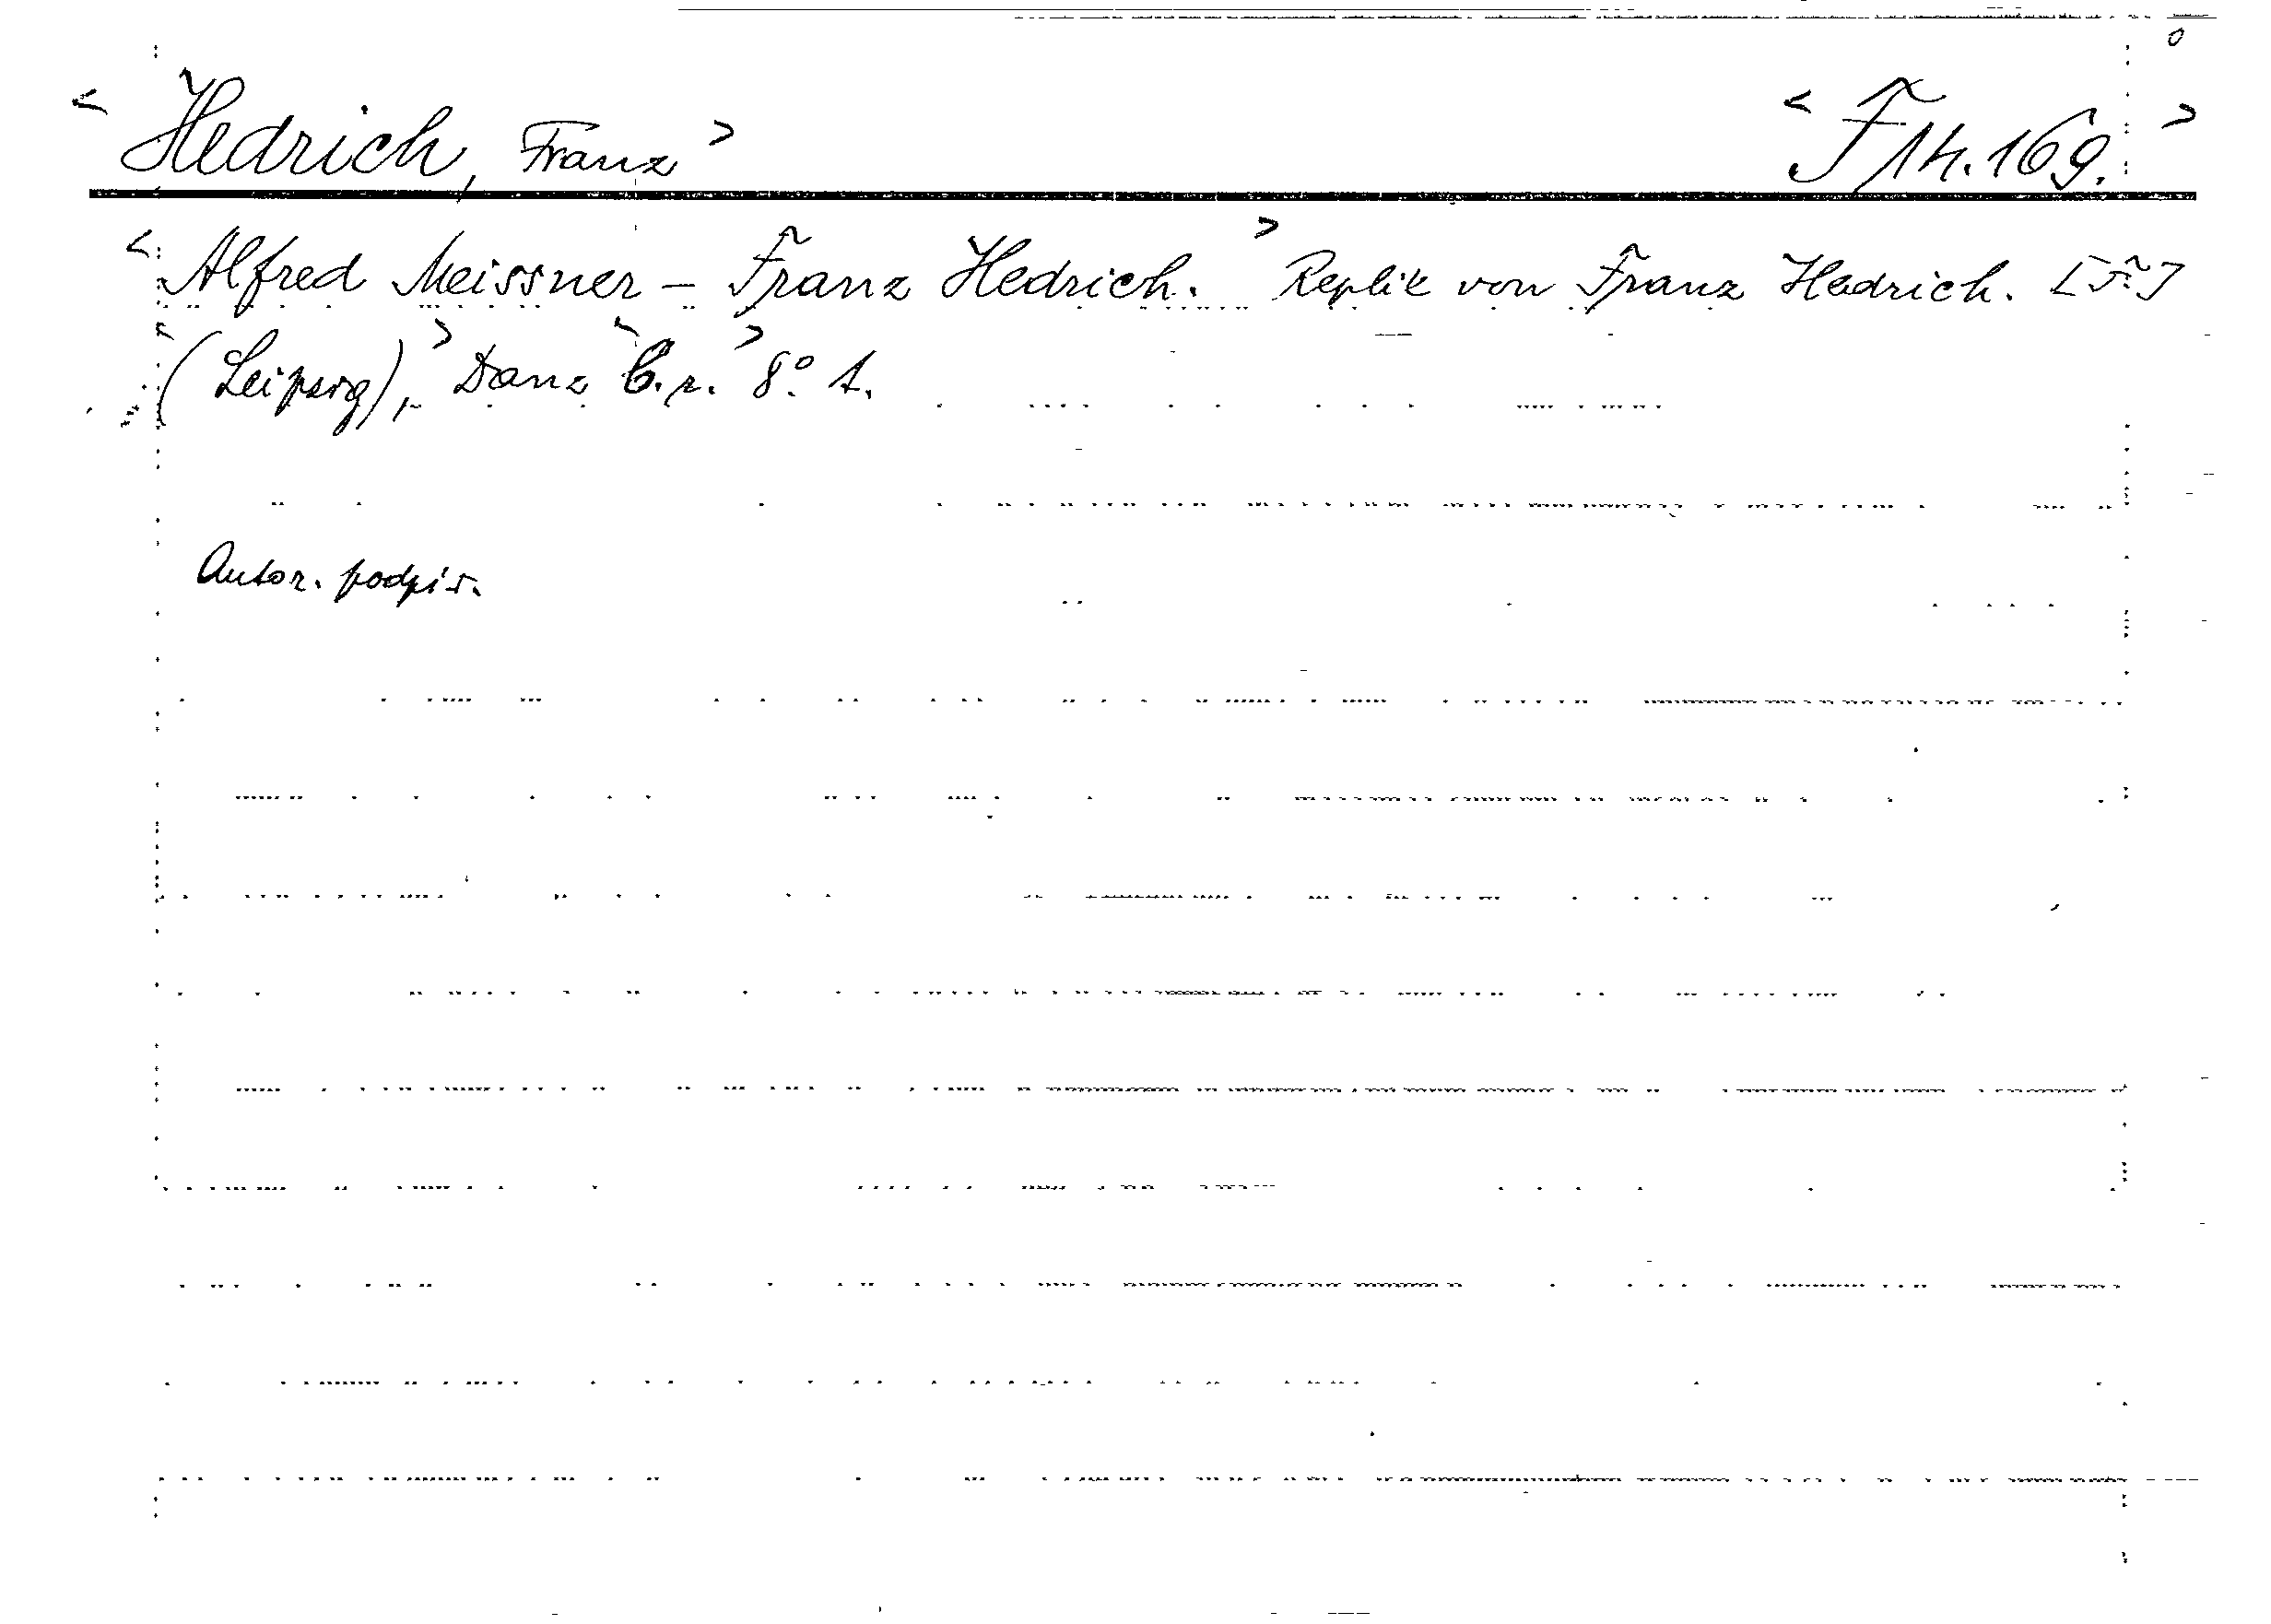 < Hedrich, Franz > < F 14.169. >
< Alfred Meissner – Franz Hedrich. > Replik von Franz Hedrich.
< (Leipzig), > Danz < C. r. > 8° 1.
Autor. podpis.